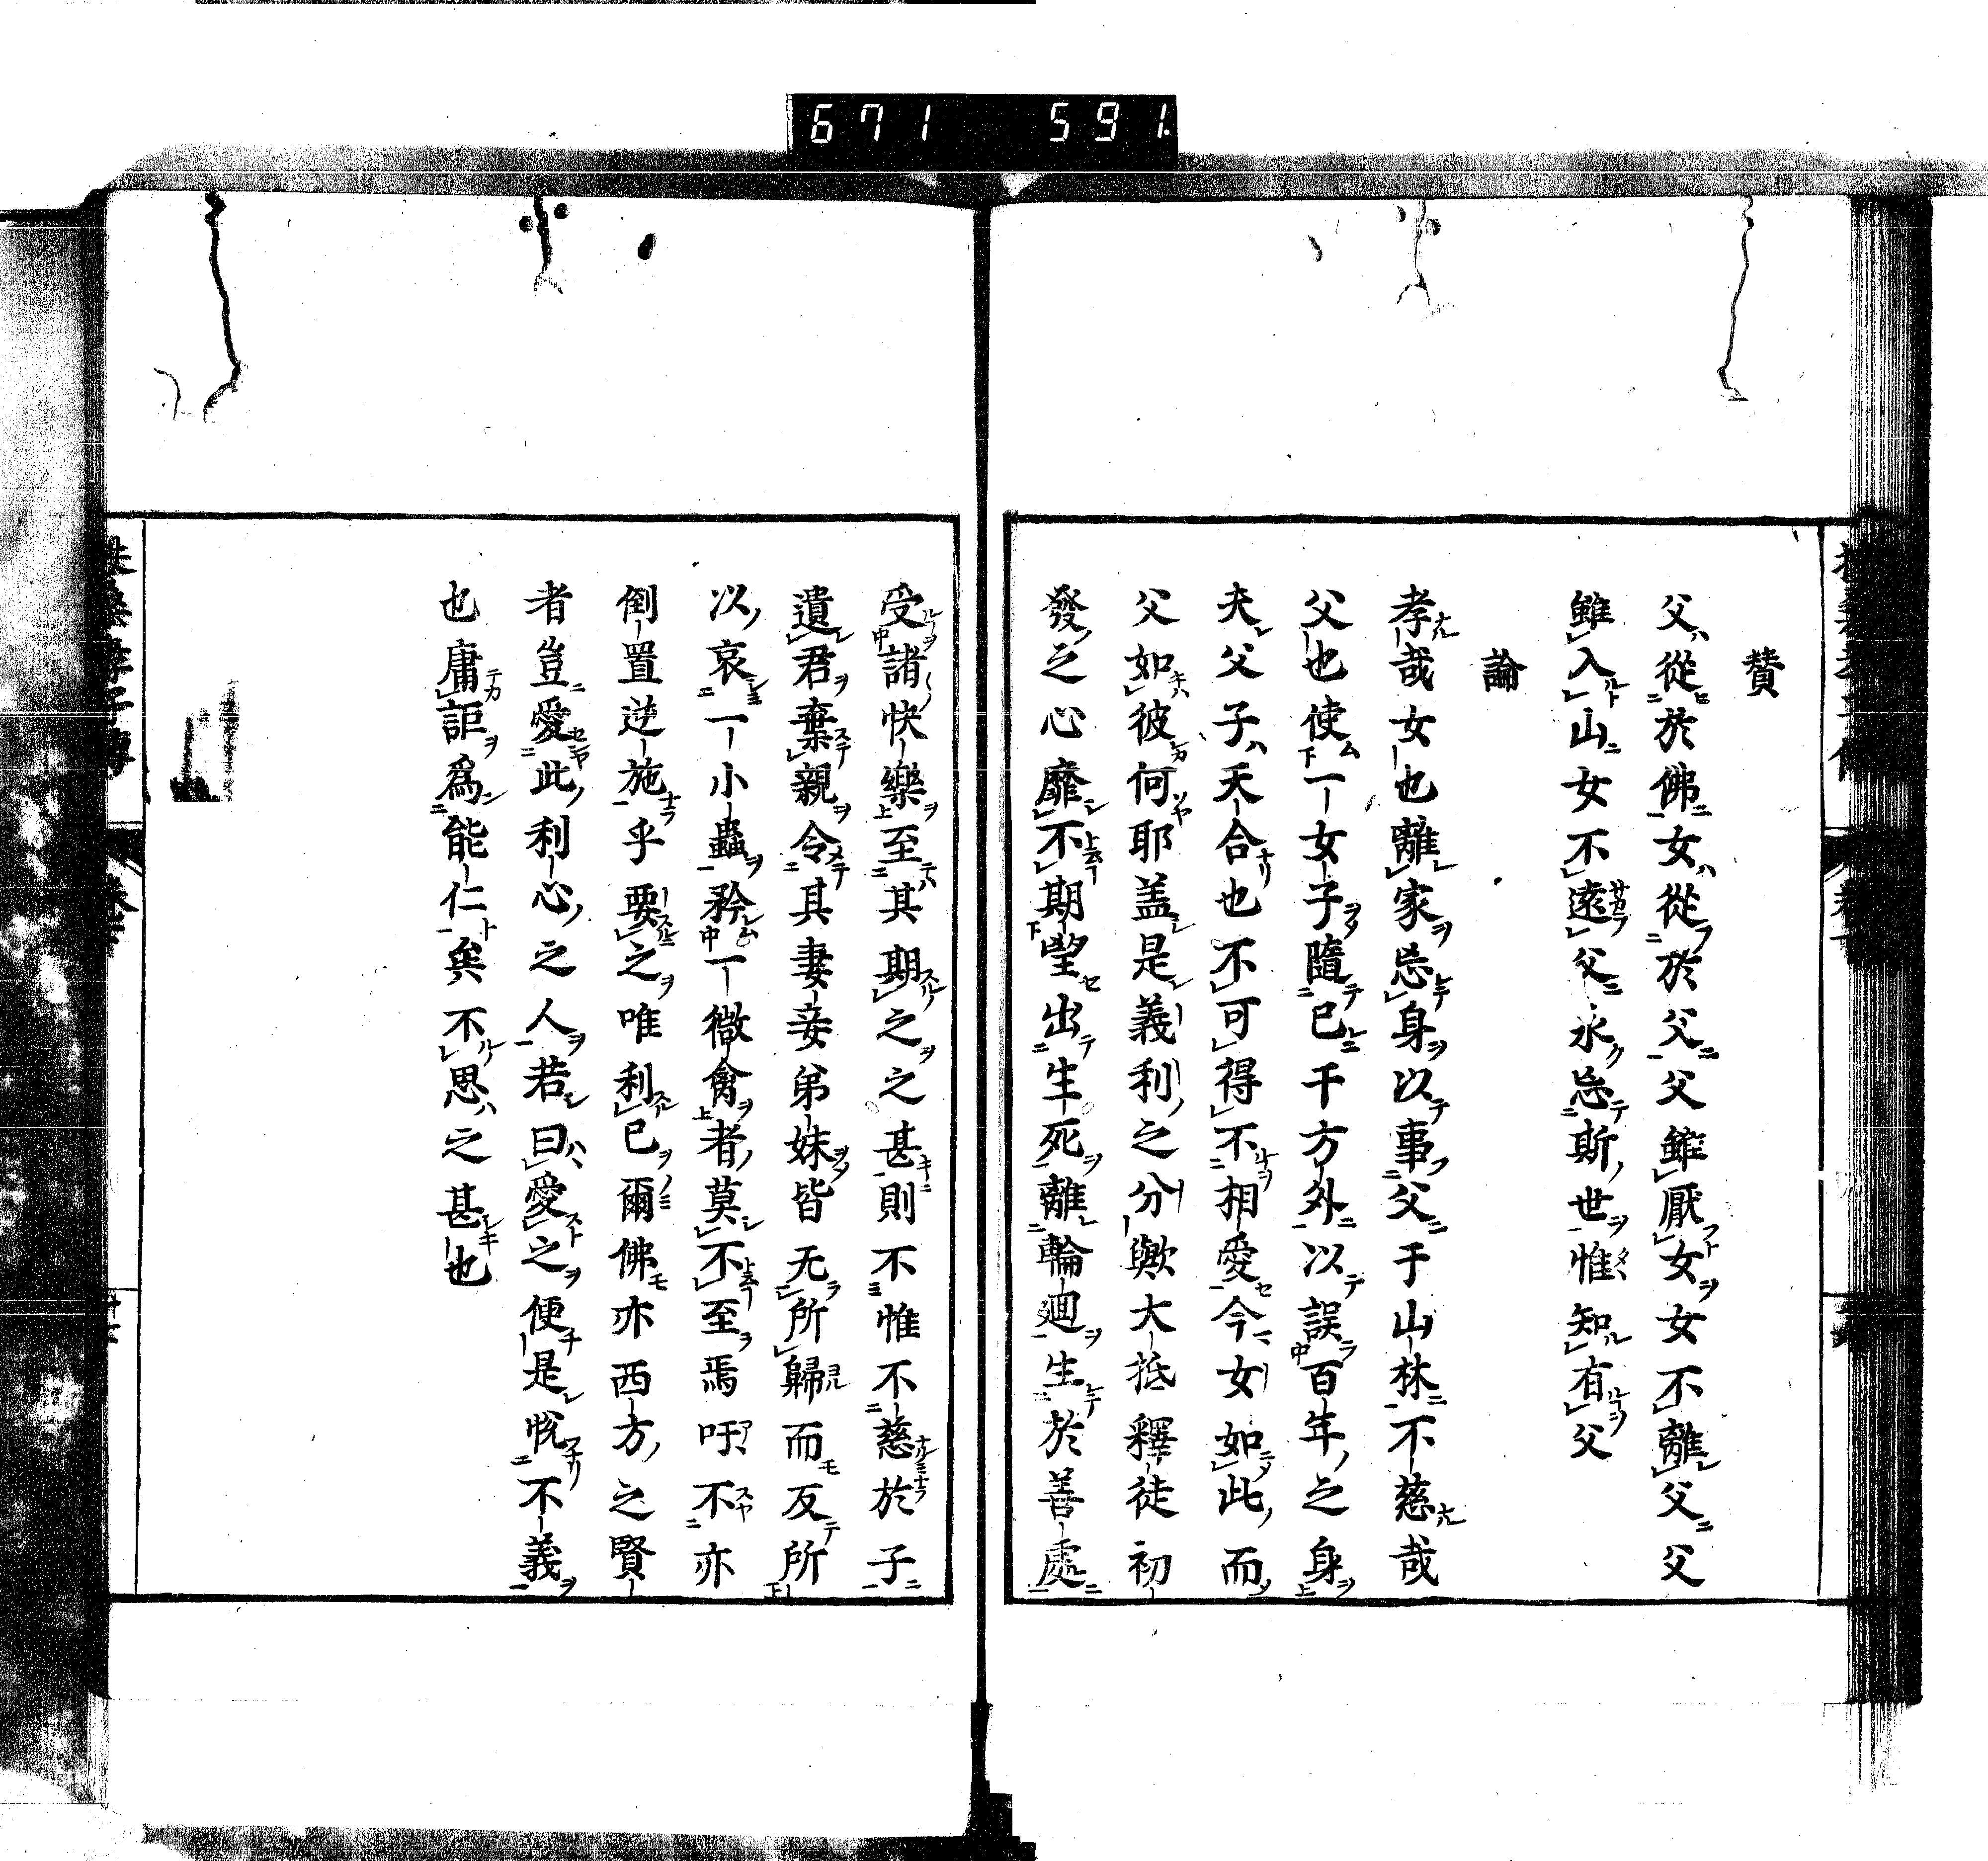 671 591
賛
父從於佛女從於父父雖厭女女不離父父
雖入山女不遠父永忘斯世惟知有父
論
孝哉女也離家忘身以事父于山林不慈哉
父也使一女子隨已千方外以誤百年之身
夫父子天合也不可得不相愛今女如此而
父如彼何耶盖是義利之分歟大抵釋徒初
發之心靡不期望出生死離輪廻生於善處
受諸快樂至其期之之甚則不惟不慈於子
遺君棄親令其妻妾弟妹皆无所歸而反所
以哀一小蟲矜一微禽者莫不至焉吁不亦
倒置逆施乎要之唯利已爾佛亦西方之賢
者豈愛此利心之人若曰愛之便是悅不義
也庸詎爲能仁矣不思之甚也